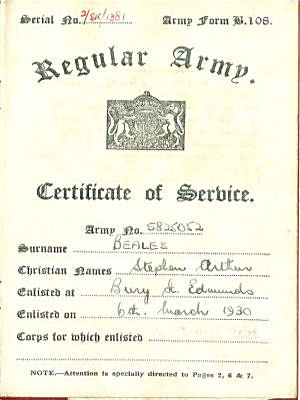 Serial No. 2/SK/1381 Army Form B.108.
Regular Army.
Certificate of Service.
Army No. 5825052
Surname BEALES
Christian Names Stephen Arthur
Enlisted at Bury St Edmunds
Enlisted on 6th. March 1930
Corps for which enlisted
NOTE.—Attention is specially directed to Pages 2, 6 & 7.